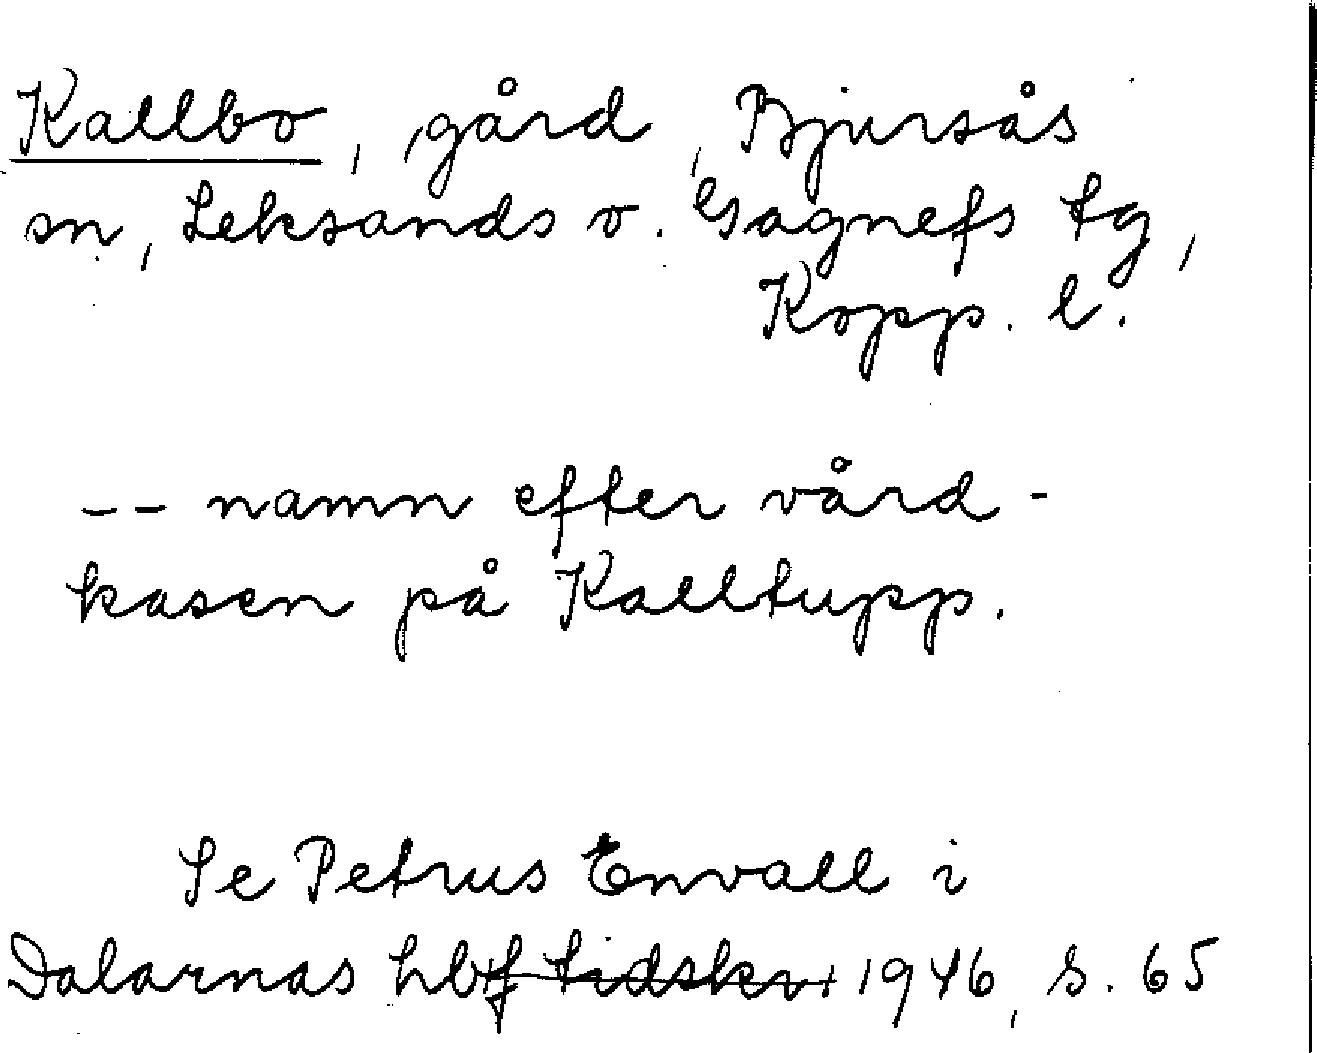 Kallbo, gård, Bjursås
sn, Leksands o. Gagnefs tg,
Kopp. l.
-- namn efter vård-
kasen på Kalltupp.
Se Petrus Envall i
Dalarnas hbf tidskr. 1946, s. 65